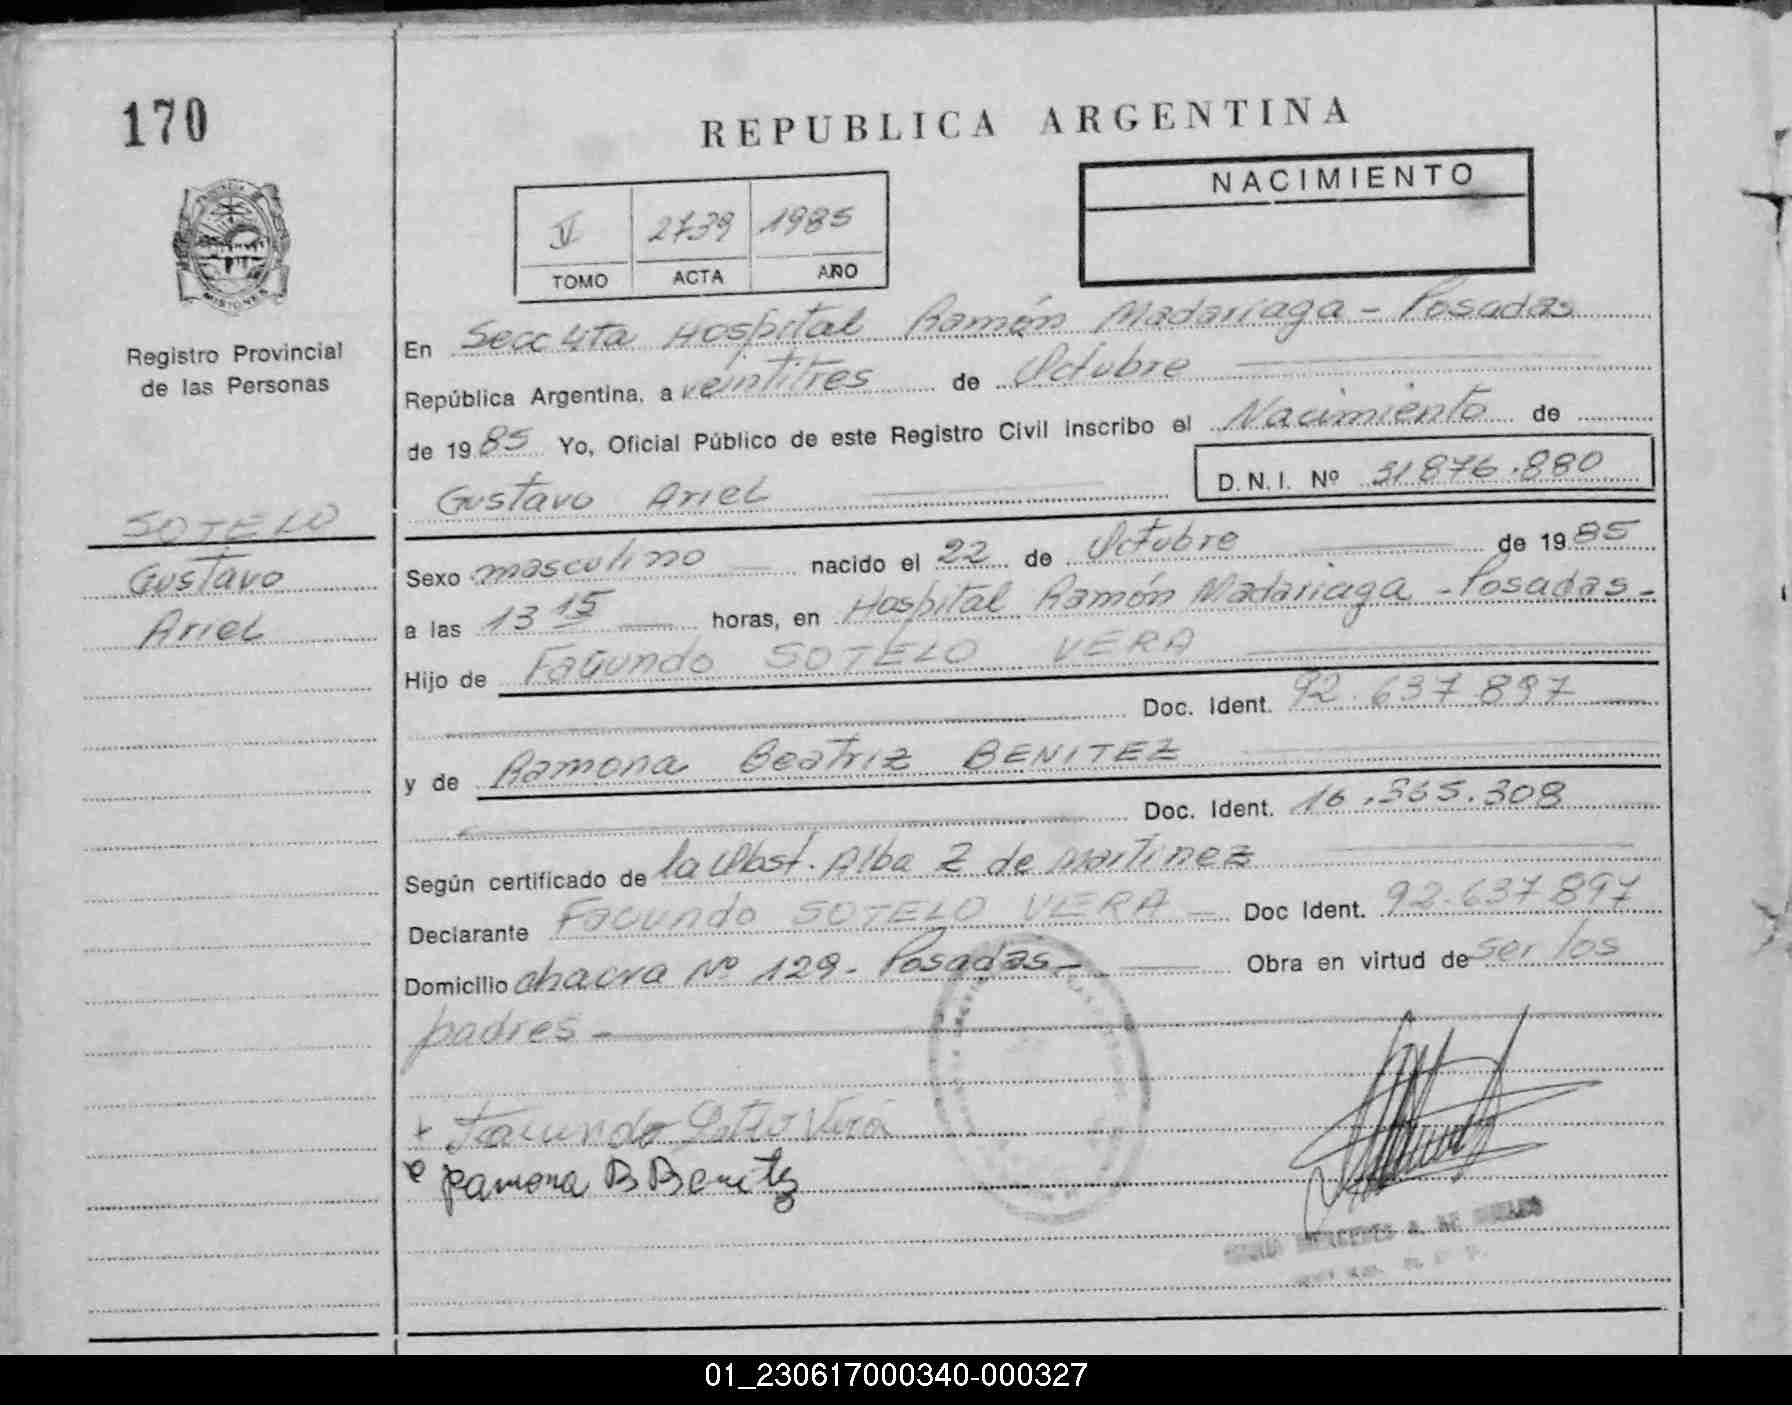 170
REPUBLICA ARGENTINA
NACIMIENTO
V 2739 1985
TOMO ACTA AÑO
MISIONES
Registro Provincial
de las Personas
En Secc 4ta Hospital Ramón Madariaga - Posadas
República Argentina, a veintitres de Octubre
de 1985 Yo, Oficial Público de este Registro Civil Inscribo el Nacimiento de
Gustavo Ariel D.N.I. Nº 31.876.880
SOTELO
Gustavo
Ariel
Sexo masculino nacido el 22 de Octubre de 1985
a las 13 15 horas, en Hospital Ramón Madariaga - Posadas -
Hijo de Facundo SOTELO VERA
Doc. Ident. 92.637.897
y de Ramona Beatriz BENITEZ
Doc. Ident. 16.365.308
Según certificado de la Obst. Alba Z de Martinez
Declarante Facundo SOTELO VERA - Doc Ident. 92.637.897
Domicilio chacra Nº 129 - Posadas - Obra en virtud de ser los
padres -
Facundo Sotelo Vera
Ramona B Benitez
01_230617000340-000327